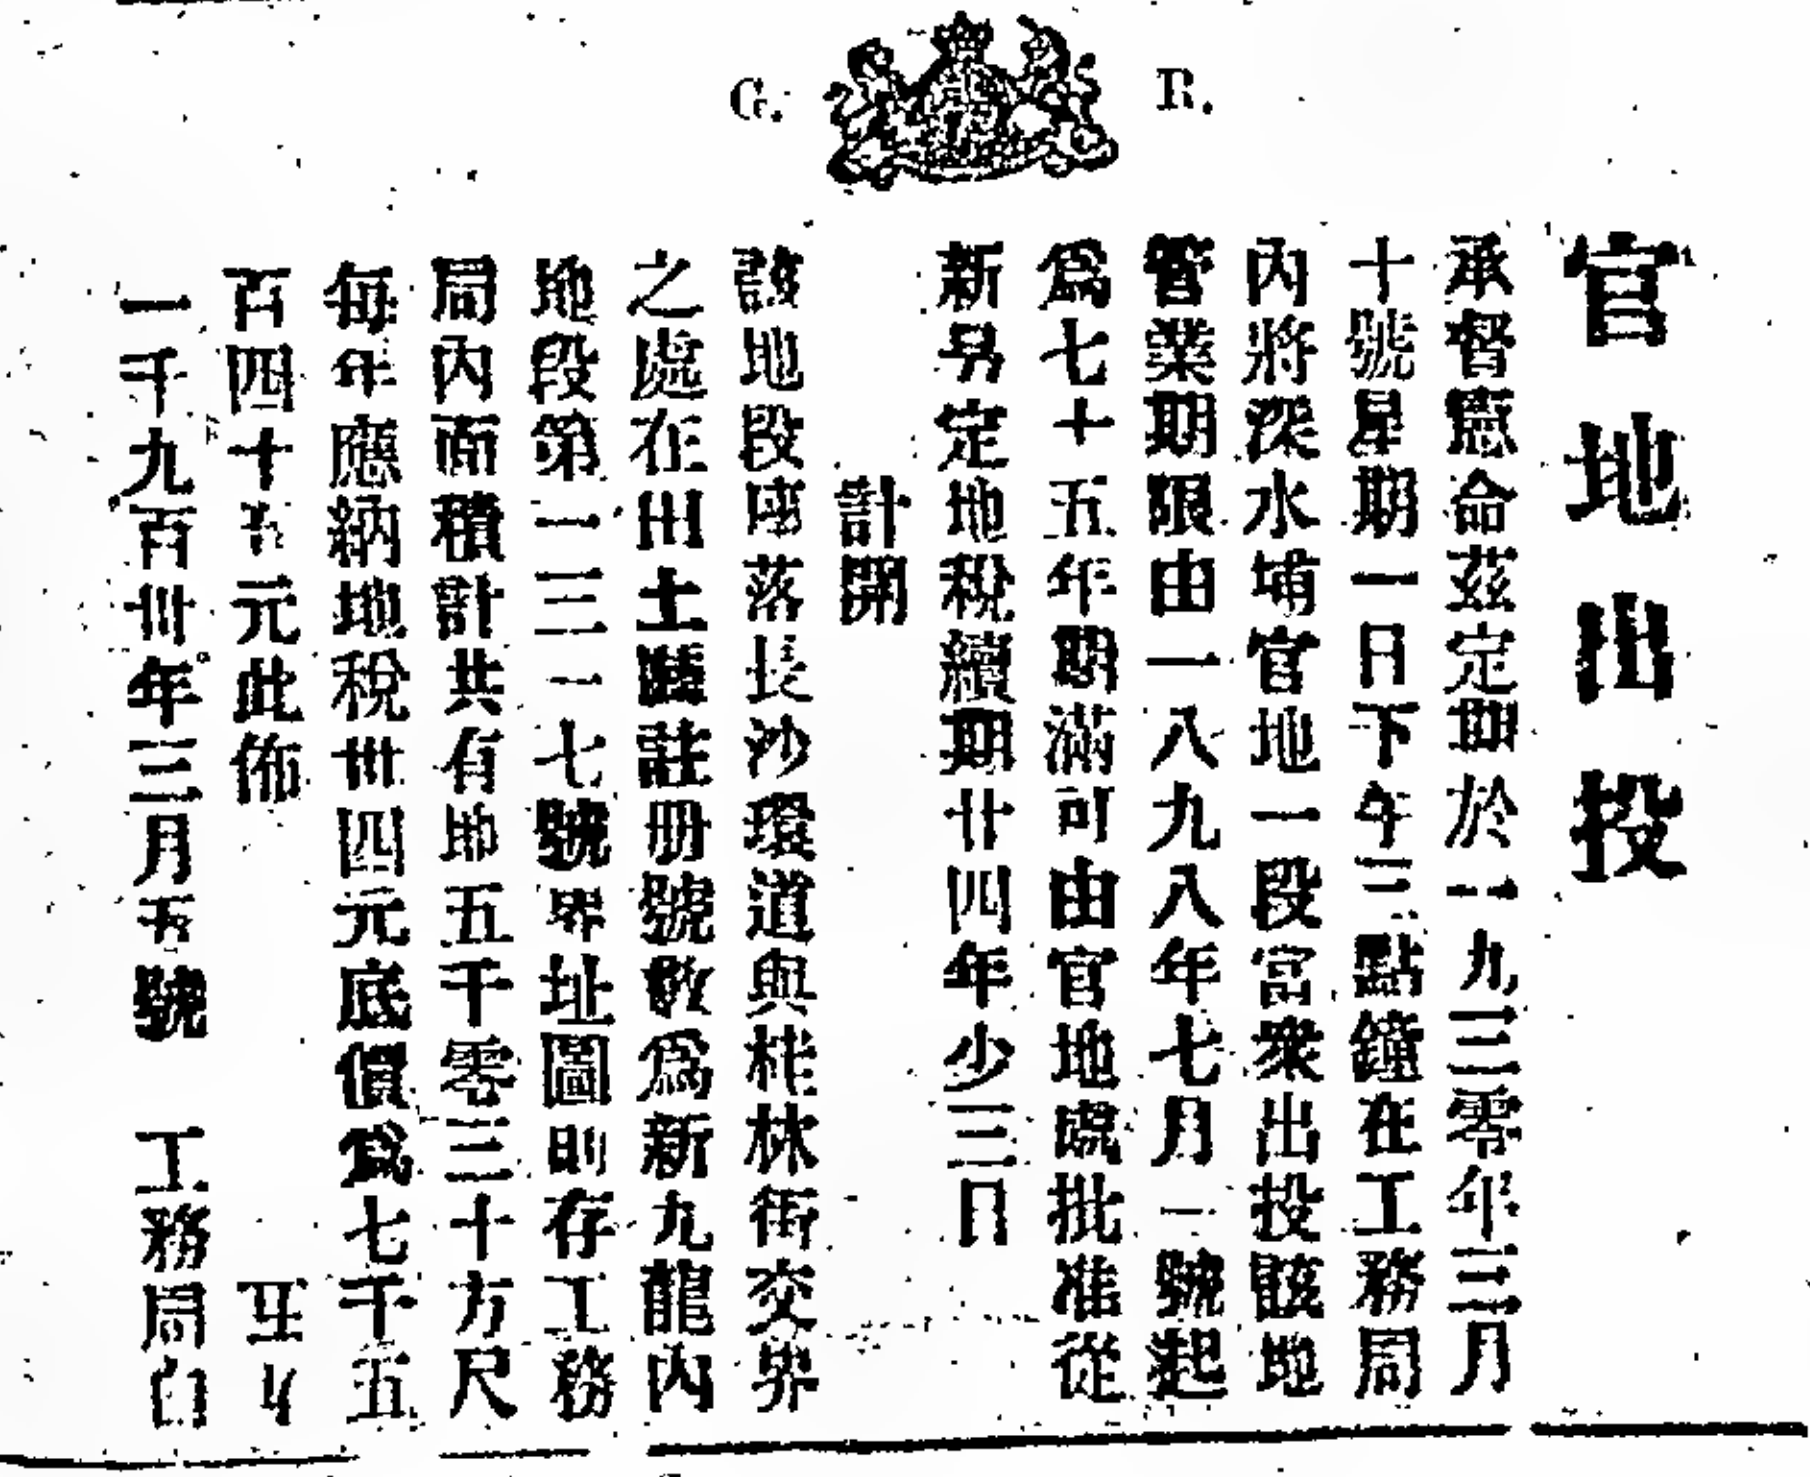 G. R.
官地出投
承督憲命茲定期於一九三零年三月
十號星期一日下午三點鐘在工務局
內將深水埔官地一段當衆出投該地
管業期限由一八九八年七月一號起
爲七十五年期滿可由官地處批准從
新另定地稅續期廿四年少三日
計開
該地段座落長沙灣道與桂林街交界
之處在田土廳註册號數爲新九龍內
地段第一三一七號界址圖則存工務
局內面積計共有地五千零三十方尺
每年應納地稅卅四元底價爲七千五
百四十五元此佈
一千九百卅年三月五號 工務局白